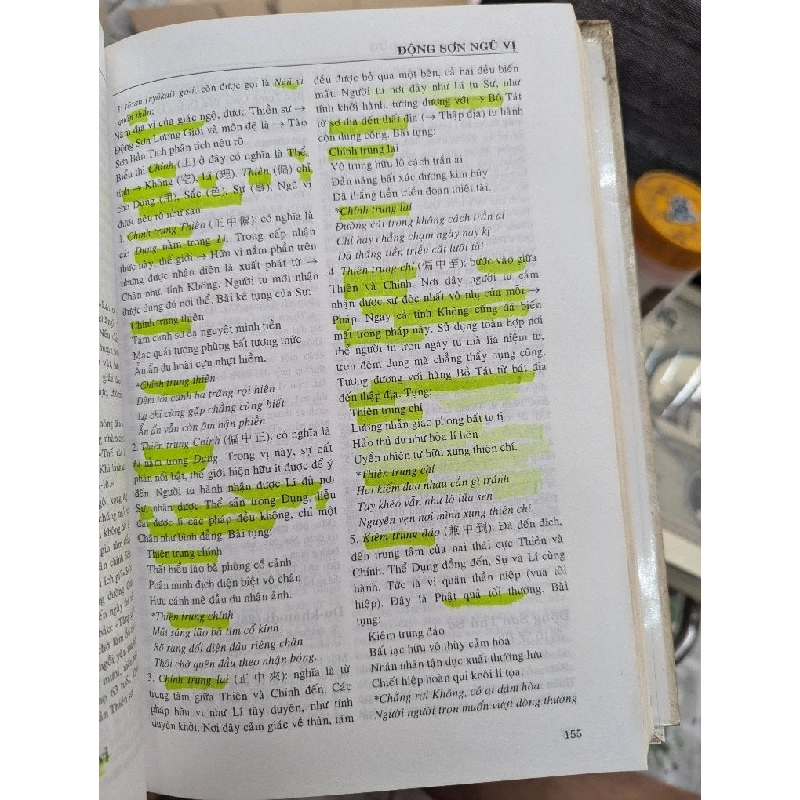 ĐỘNG SƠN NGŨ VỊ
(ryōkai) goi, còn được gọi là Ngũ vị
quân thần.
Năm địa vị của giác ngộ, được Thiền sư →
Động Sơn Lương Giới và môn đệ là → Tào
Sơn Bản Tịch phân tích nêu rõ.
Biểu thị Chính (正) ở đây có nghĩa là Thể,
tính → Không (空), Lí (理). Thiên (偏) chỉ
cho Dụng (用), Sắc (色), Sự (事). Ngũ vị
được nêu rõ như sau
1. Chính trung Thiên (正中偏): có nghĩa là
cái Dụng nằm trong Lí. Trong cấp nhận
thức này, thế giới → Hiện vi nằm phần trên
nhưng được nhận diện là xuất phát từ →
Chân như, tính Không. Người tu mới nhận
được đúng đó nơi thể. Bài kệ tụng của Sư:
Chính trung thiên
Tam canh sơ dạ nguyệt minh tiền
Mạc quái tương phùng bất tương thức
Ẩn ẩn du hoài cựu nhựt hiềm.
*Chính trung thiên
Đêm rơi canh ba trăng rọi hiên
Lạ chi cùng gặp chẳng cùng biết
Ẩn ẩn vẫn còn ôm hận phiền
2. Thiên trung Chính (偏中正), có nghĩa là
Lí nằm trong Dụng. Trong vị này, sự cất
phần nổi bật, thế giới hiện hữu ít được để ý
đến. Người tu hành nhận được Lí đủ nơi
Sự, nhận được Thể sẵn trong Dụng, hiểu
đạt được lí các pháp đều không, chỉ một
Chân như bình đẳng. Bài tụng:
Thiên trung chính
Thất hiểu lão bà phùng cổ cảnh
Phân minh địch diện biệt vô chân
Hưu cánh mê đầu du nhận ảnh.
*Thiên trung chính
Mất sáng lão bà tìm cổ kính
Rõ ràng đối diện đâu riêng chân
Thôi chớ quên đầu theo nhận bóng.
3. Chính trung lai (正中來): nghĩa là từ
trung tâm giữa Thiên và Chính đến. Các
pháp hữu vi như Lí tùy duyên, như tính
duyên khởi. Nơi đây cảm giác về thân, tâm
đều được bỏ qua một bên, cả hai đều biến
mất. Người tu nơi đây như lí tu Sự, như
tính khởi hành, tương đương với → Bồ Tát
từ sơ địa đến thất địa (→ Thập địa) tu hành
còn dụng công. Bài tụng:
Chính trung lai
Vô trung hữu lộ cách trần ai
Đản năng bất xúc đương kim húy
Dã thắng tiền triều đoạn thiệt tài.
*Chính trung lai
Đường cái trong không cách trần ai
Chỉ hay chẳng chạm ngày nay kị
Đã thắng tiền triều cắt lưỡi tài
4. Thiên trung chí (偏中至); bước vào giữa
Thiên và Chính. Nơi đây người tu cảm
nhận được sự độc nhất vô nhị của mỗi →
Pháp. Ngay cả tính Không cũng đã biến
mất trong pháp này. Sử dụng toàn hợp nơi
thể người tu trọn ngày tu mà lìa niệm tu,
trọn đêm dụng mà chẳng thấy dụng công.
Tương đương với hàng Bồ Tát từ bát địa
đến thập địa. Tụng:
Thiên trung chí
Lưỡng nhẫn giao phong bất tu tị
Hảo thủ du như hỏa lí liên
Uyển nhiên tự hữu xung thiên chí.
*Thiên trung chí
Hai kiếm đua nhau cần gì tránh
Tay khéo vẫn như lò lửa sen
Nguyên vẹn nơi mình xung thiên chí
5. Kiêm trung đáo (兼中到): Đã đến đích,
đến trung tâm của hai thái cực Thiên và
Chính. Thể Dụng đồng đến, Sự và Lí cùng
hành. Tức là vị quân thần hiệp (vua tôi
hiệp). Đây là Phật quả tối thượng. Bài
tụng:
Kiêm trung đáo
Bất lạc hữu vô thùy cảm hòa
Nhân nhân tận dục xuất thường lưu
Chiết hiệp hoàn qui khôi lí tọa.
*Chẳng rơi Không, có ai dám hòa
Người người trọn muốn vượt dòng thường
155